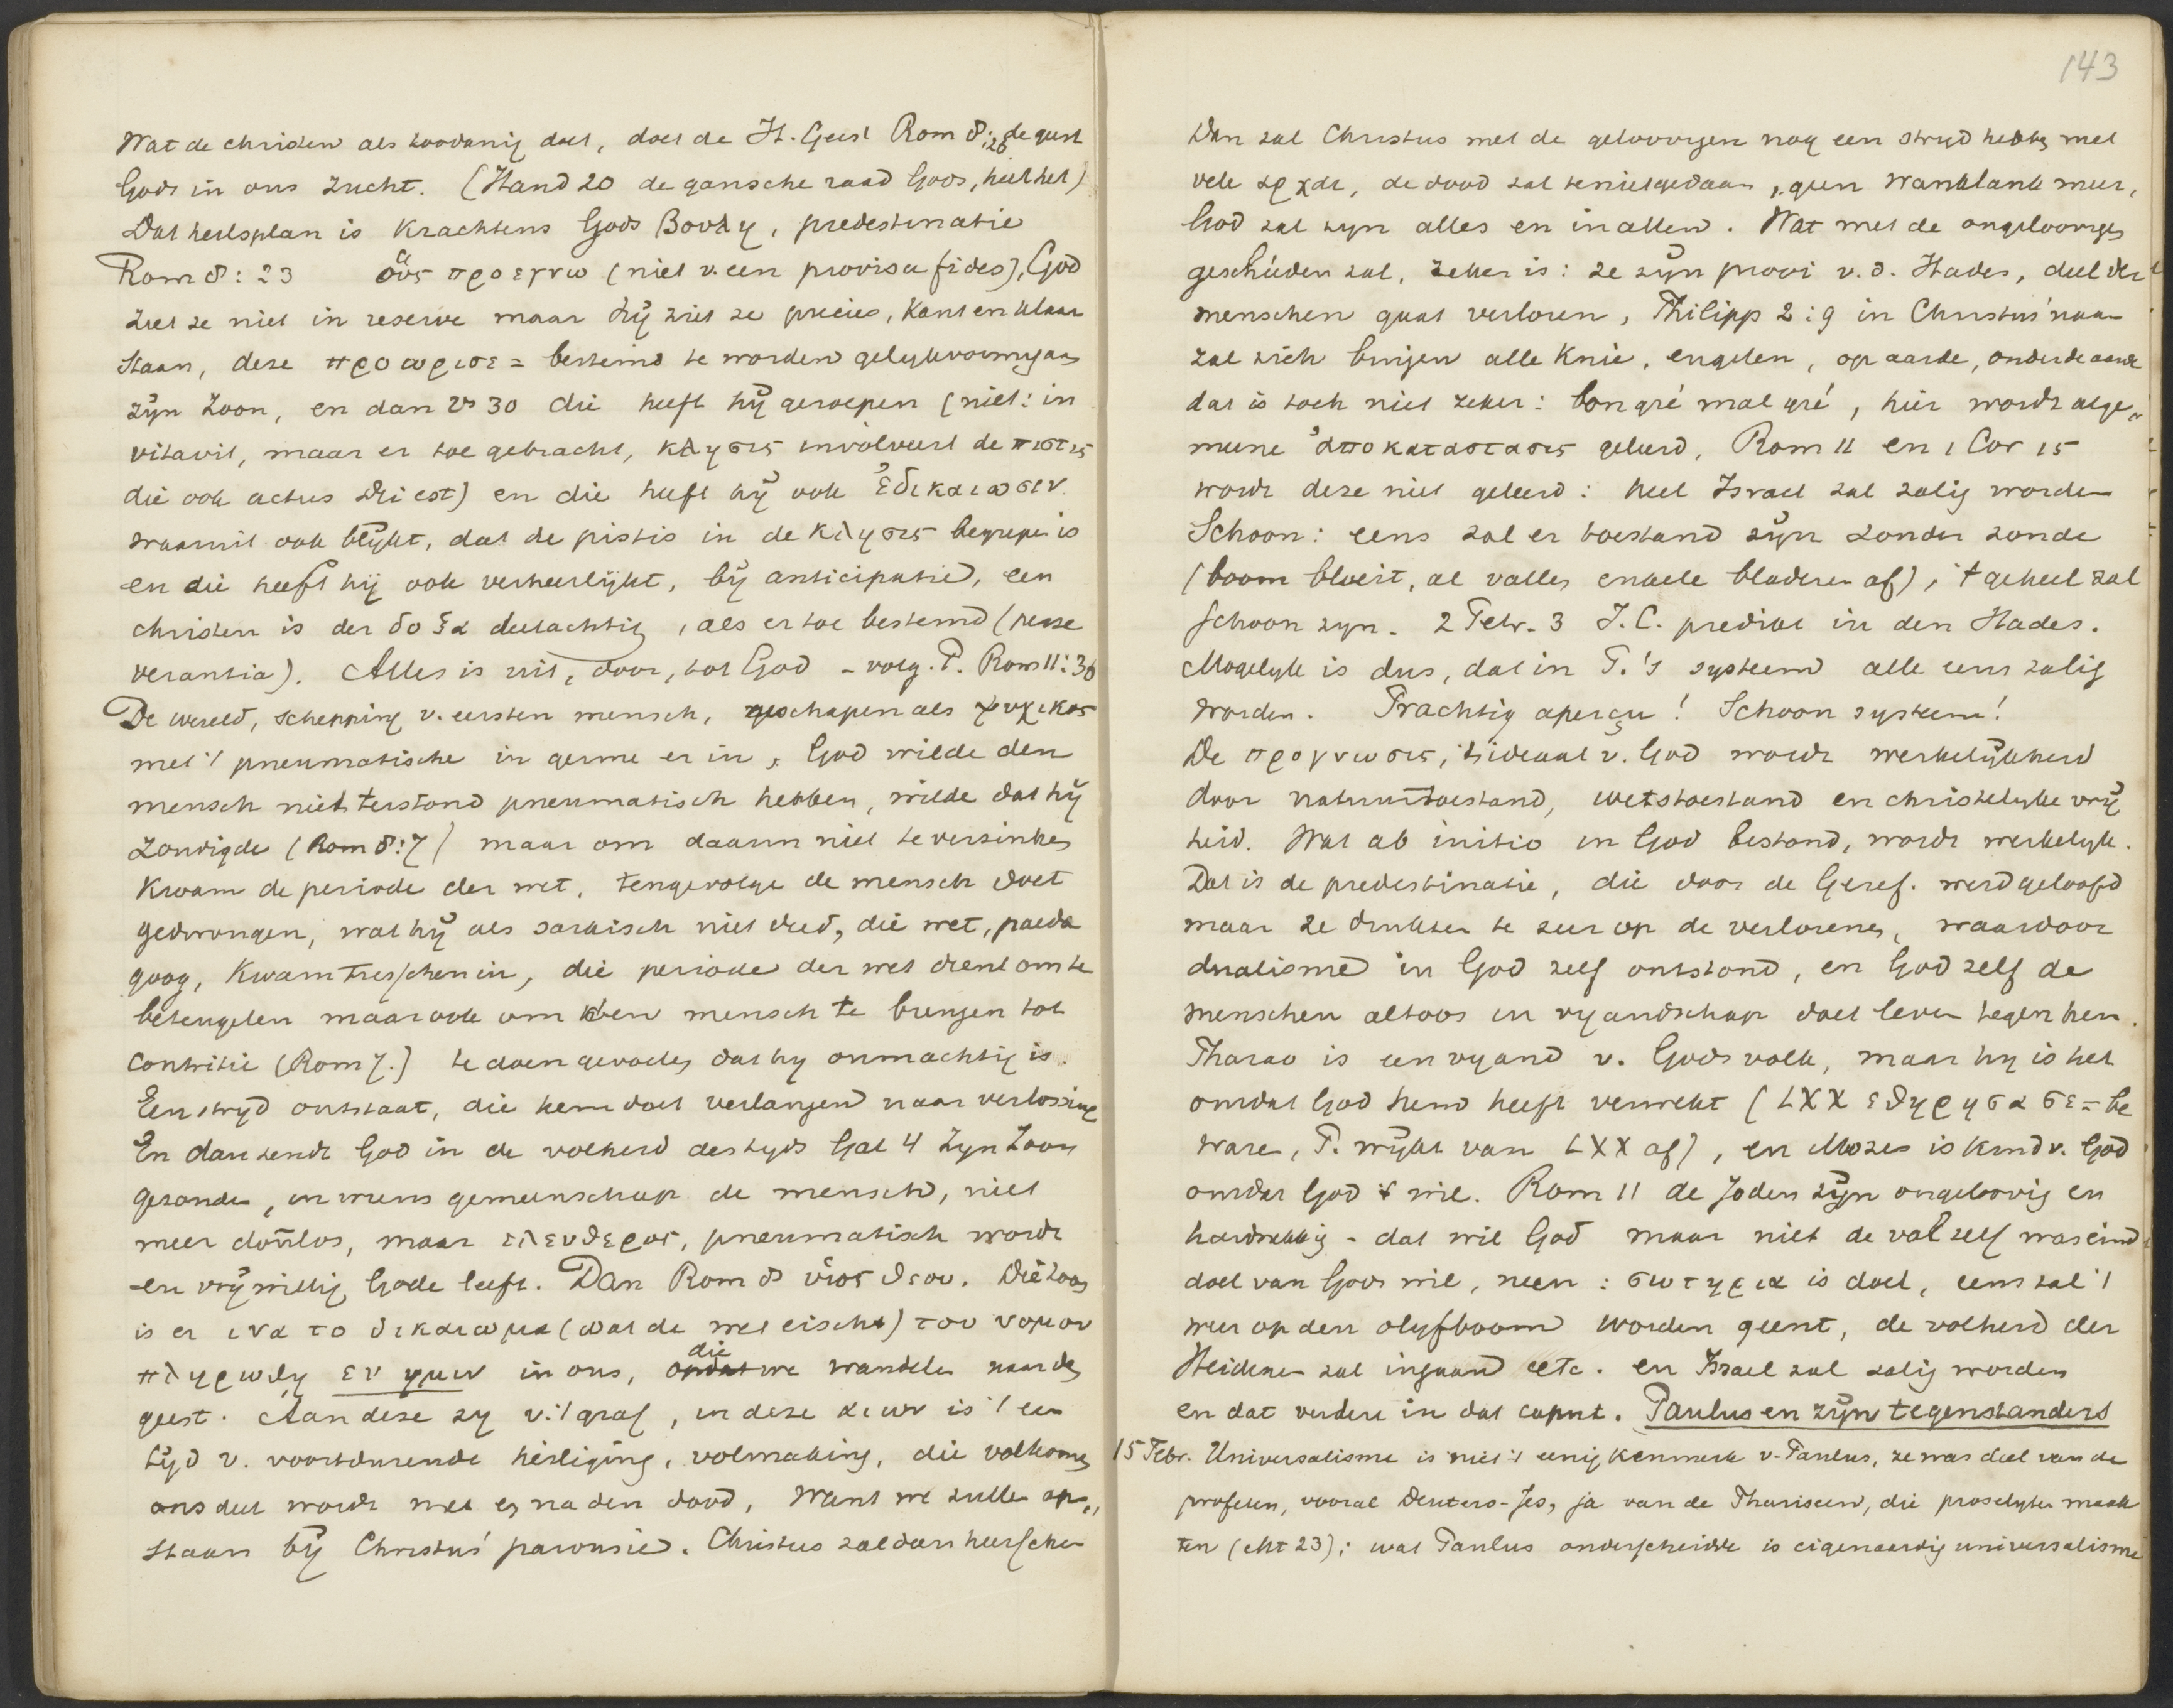 Wat de christen als zoodanig doet, doet de H. Geest Rom 8:26 de geest
Gods in ons zucht. (Hand 20 de gansche raad Gods, hiel het)
Dat heilsplan is krachtens Gods βουλη, predestinatie
Rom 8:23 οὓς προεγνω (niet v. een provisa fides), God
ziet ze niet in reserve maar hij ziet ze precies, kant en klaar
staan, deze προωρισε = bestemd te worden gelykvormig aan
zijn Zoon, en dan vs 30 die heeft hij geroepen (niet: in
vitavit, maar er toe gebracht, κλησις involveert de πιστις
die ook actus Dei est) en die heeft hij ook ἐδικαιωσεν
waaruit ook blijkt, dat de pistis in de κλησις begrepen is
en die heeft hij ook verheerlijkt, bij anticipatie, een
christen is der δοξα deelachtig, als er toe bestemd (perse
verantia). Alles is uit, door, tot God - volg. P. Rom 11:36
De wereld, schepping v. eersten mensch, geschapen als ψυχικος
met 't pneumatische in germe er in, God wilde den
mensch niet terstond pneumatisch hebben, wilde dat hij
zondigde (Rom 8:7) maar om daarin niet te verzinken
kwam de periode der wet, tengevolge de mensch doet
gedwongen, wat hij als sarkisch niet deed, die wet, paeda
goog, kwam tusschenin, die periode der wet dient om te
beteugelen maar ook om den mensch te brengen tot
contritie (Rom 7.) te doen gevoelen dat hy onmachtig is.
Een stryd ontstaat, die hem doet verlangen naar verlossing
En dan zendt God in de volheid des tyds Gal 4 Zyn Zoon
gezonden, in wiens gemeenschap de mensch, niet
meer doulos, maar ελευθερος, pneumatisch wordt
en vrijwillig Gode leeft. Dan Rom 8 υἱος θεου. Die Zoon
is er ινα το δικαιωμα (wat de wet eischt) του νομου
πληρωθη εν ημιν in ons, die we wandelen naar den
geest. Aan deze zy v. 't graf, in deze αιων is 't een
tijd v. voortdurende heiliging, volmaking, die volkomen
ons deel wordt niet eg na den dood, want we zullen op„
staan bij Christus' parousie. Christus zal dan heerschen
143
Dan zal Christus met de geloovigen nog een stryd hebben met
vele αρχαι, de dood zal tenietgedaan, geen wanklank meer,
God zal zyn alles en in allen. Wat met de ongeloovigen
geschieden zal, zeker is: ze zijn prooi v. d. Hades, deel der
menschen gaat verloren, Philipp 2:9 in Christus' naam
zal zich buigen alle knie, engelen, op aarde, onder de aarde
dat is toch niet zeker: bon gré mal gré, hier wordt alge„
meene ἀποκαταστασις geleerd, Rom 11 en 1 Cor 15
wordt deze niet geleerd: heel Israel zal zalig worden
Schoon: eens zal er toestand zijn zonder zonde
(boom bloeit, al vallen enkele bladeren af), 't geheel zal
schoon zyn. 2 Petr. 3 J.C. predikt in den Hades.
Mogelyk is dus, dat in P.'s systeem alle eens zalig
worden. Prachtig aperçu! Schoon systeem!
De προγνωσις, 't ideaal v. God wordt werkelijkheid
door natuurtoestand, wetstoestand en christelyke vrij
heid. Wat ab initio in God bestond, wordt werkelyk.
Dat is de predestinatie, die door de Geref. werd geloofd
maar ze drukten te zeer op de verlorenen, waardoor
dualisme in God zelf ontstond, en God zelf de
menschen altoos in vyandschap doet leven tegen hem.
Pharao is een vyand v. Gods volk, maar hy is het
omdat God hem heeft verwekt (LXX εθηρησασε = be
ware, P. wijkt van LXX af), en Mozes is kind v. God
omdat God 't wil. Rom 11 de Joden zijn ongeloovig en
hardnekkig - dat wil God maar niet de val zelf was eind
doel van Gods wil, neen: σωτηρια is doel, eens zal 't
weer op den olyfboom worden geent, de volheid der
Heidenen zal ingaan etc. en Israel zal zalig worden
en dat verdere in dat caput. Paulus en zijn tegenstanders
15 Febr. Universalisme is niet 't eenig kenmerk v. Paulus, ze was deel van de
profeten, vooral Deutero-Jes, ja van de Phariseen, die proselyten maak
ten (Mt 23); wat Paulus onderscheidde is eigenaardig universalisme